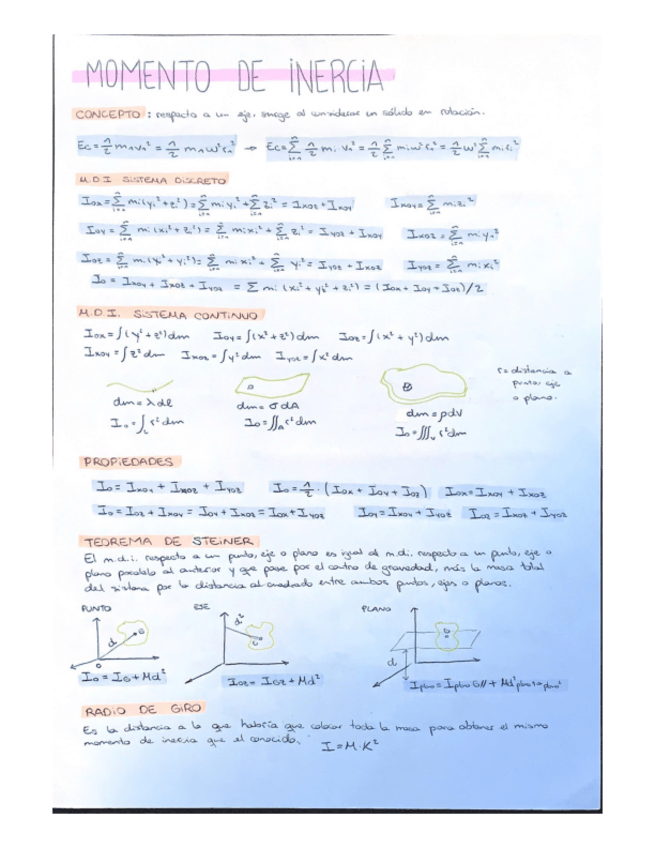 MOMENTO DE INERCIA
CONCEPTO: respecto a un eje, surge al considerar un sólido en rotación.
Ec = 1/2 m₁v₁² = 1/2 m₁ω²r₁² → Ec = Σ 1/2 mᵢ·vᵢ² = 1/2 Σ mᵢω²rᵢ² = 1/2 ω² Σ mᵢrᵢ²
M.D.I SISTEMA DISCRETO
Iox = Σ mᵢ(yᵢ²+zᵢ²) = Σ mᵢyᵢ² + Σ zᵢ² = Ixoz + Ixoy Ixoy = Σ mᵢzᵢ²
Ioy = Σ mᵢ(xᵢ²+zᵢ²) = Σ mᵢxᵢ² + Σ zᵢ² = Iyoz + Ixoy Ixoz = Σ mᵢyᵢ²
Ioz = Σ mᵢ(xᵢ²+yᵢ²) = Σ mᵢxᵢ² + Σ yᵢ² = Iyoz + Ixoz Iyoz = Σ mᵢxᵢ²
Io = Ixoy + Ixoz + Iyoz = Σ mᵢ(xᵢ²+yᵢ²+zᵢ²) = (Iox + Ioy + Ioz)/2
M.D.I. SISTEMA CONTINUO
Iox = ∫(y²+z²)dm Ioy = ∫(x²+z²)dm Ioz = ∫(x²+y²)dm
Ixoy = ∫z²dm Ixoz = ∫y²dm Iyoz = ∫x²dm
r = distancia a
punto, eje
o plano.
dm = λdl dm = σdA dm = ρdV
Io = ∫L r²dm Io = ∬A r²dm Io = ∭V r²dm
PROPIEDADES
Io = Ixoy + Ixoz + Iyoz Io = 1/2·(Iox + Ioy + Ioz) Iox = Ixoy + Ixoz
Io = Ioz + Ixoy = Ioy + Ixoz = Iox + Iyoz Ioy = Ixoy + Iyoz Ioz = Ixoz + Iyoz
TEOREMA DE STEINER
El m.d.i. respecto a un punto, eje o plano es igual al m.d.i. respecto a un punto, eje o
plano paralelo al anterior y que pase por el centro de gravedad, más la masa total
del sistema por la distancia al cuadrado entre ambos puntos, ejes o planos.
PUNTO EJE PLANO
d G O d² G d G
Io = IG + Md² Ioz = IGz + Md² Iplano = Iplano G// + Md²
RADIO DE GIRO
Es la distancia a la que habría que colocar toda la masa para obtener el mismo
momento de inercia que el conocido. I = M·K²